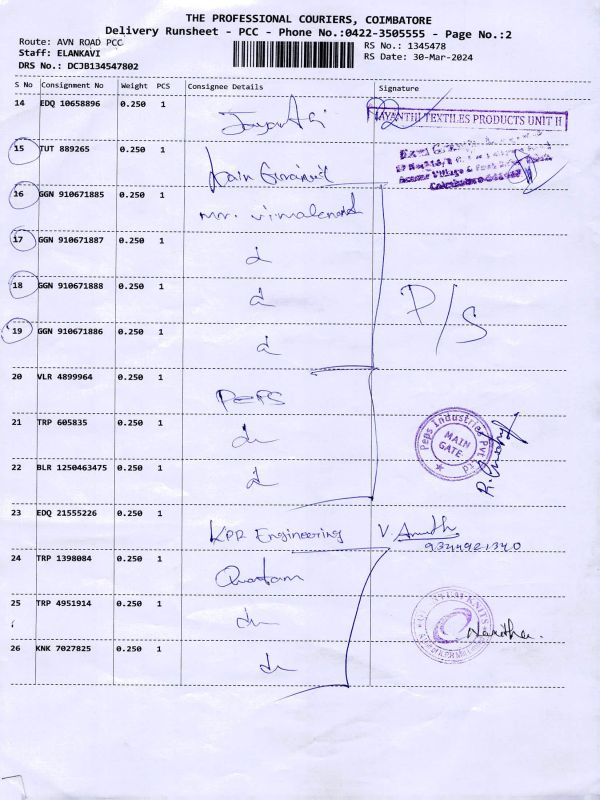 THE PROFESSIONAL COURIERS, COIMBATORE
Delivery Runsheet - PCC - Phone No.:0422-3505555 - Page No.:2
Route: AVN ROAD PCC
RS No.: 1345478
Staff: ELANKAVI
RS Date: 30-Mar-2024
DRS No.: DCJB134547802
S No Consignment No Weight PCS Consignee Details Signature
14 EDQ 10658896 0.250 1 Jayanthi
JAYANTHI TEXTILES PRODUCTS UNIT II
15 TUT 889265 0.250 1
16 GGN 910671885 0.250 1 Mr. Vimalanand
17 GGN 910671887 0.250 1
18 GGN 910671888 0.250 1 P/S
19 GGN 910671886 0.250 1
20 VLR 4899964 0.250 1 PEPS
21 TRP 605835 0.250 1
Peps Industries Pvt Ltd
MAIN GATE
22 BLR 1250463475 0.250 1
23 EDQ 21555226 0.250 1 KPR Engineering V. Ananth
24 TRP 1398084 0.250 1 Quantam
25 TRP 4951914 0.250 1
26 KNK 7027825 0.250 1